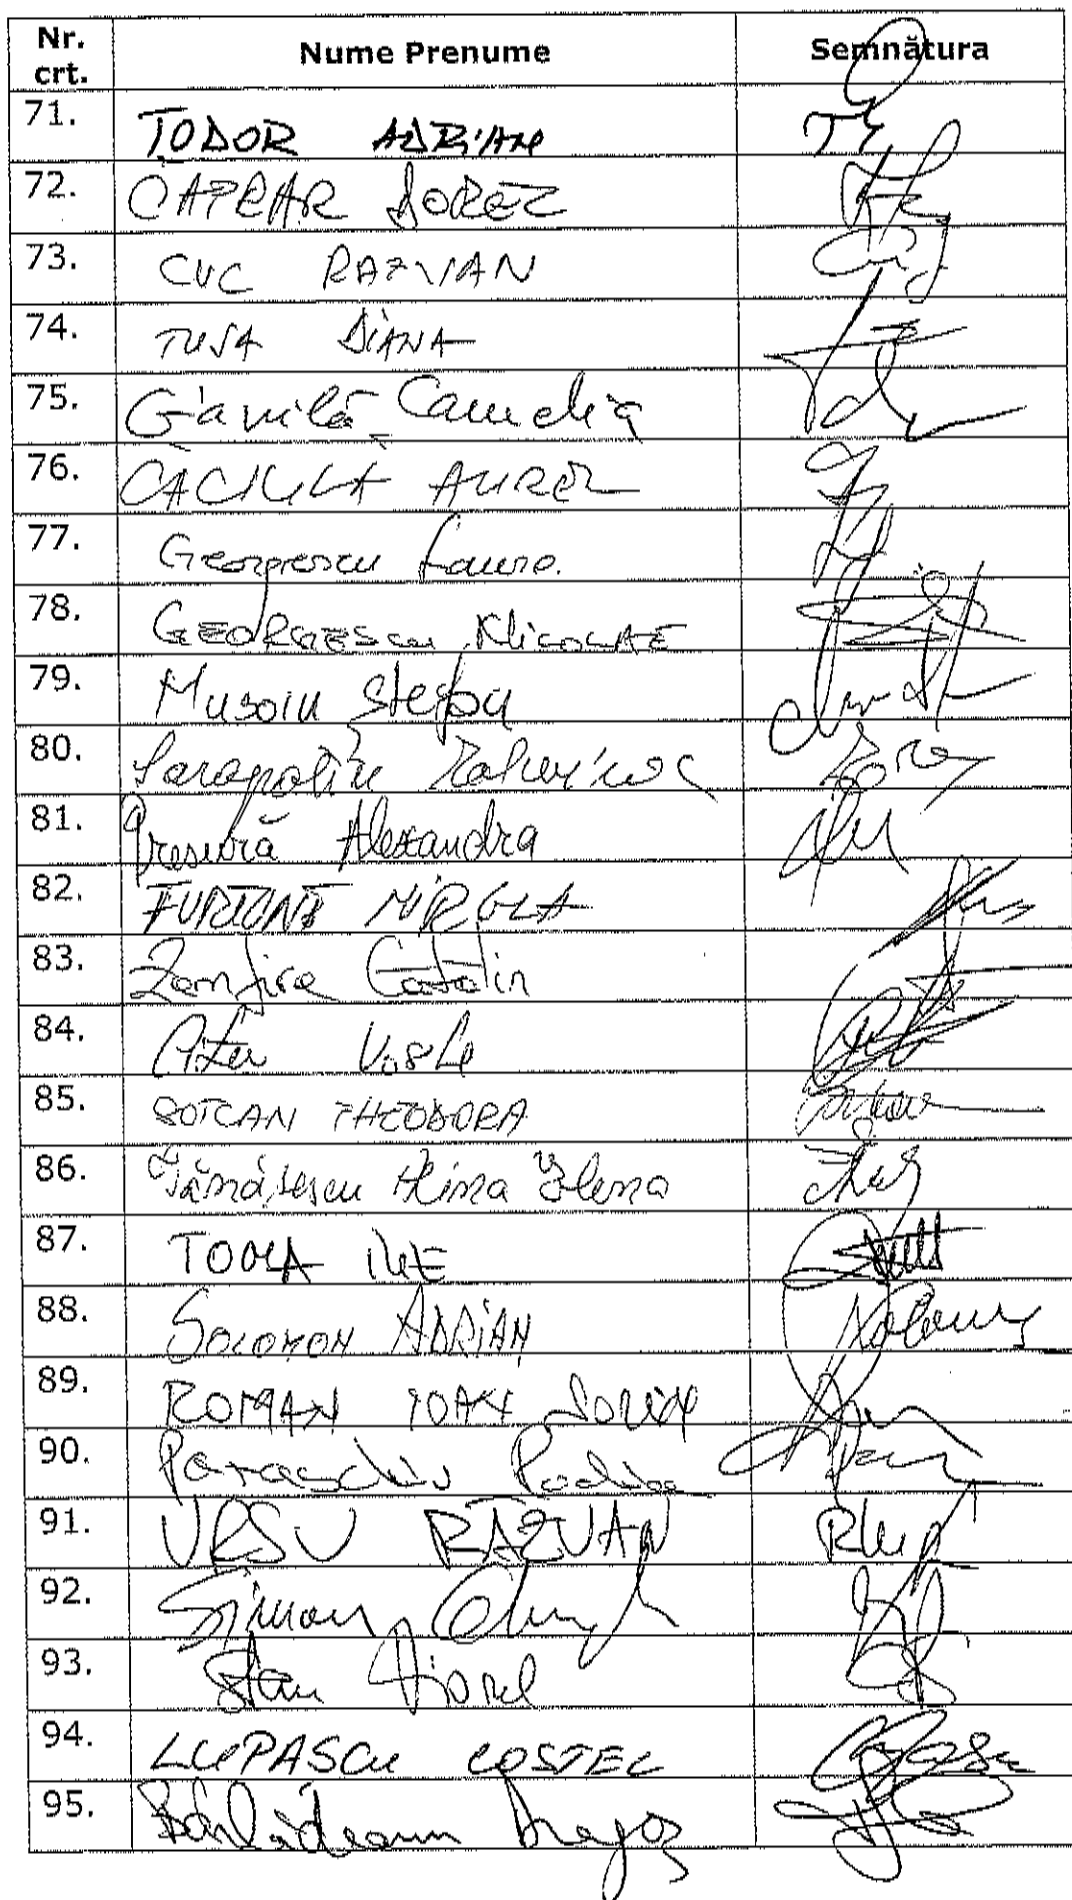 Nr. crt. Nume Prenume Semnătura
71. TODOR ADRIAN
72. CAPRAR DOREL
73. CUC RAZVAN
74. TUSA DIANA
75. Gavrilă Camelia
76. CĂCIULĂ AUREL
77. Georgescu Laura
78. GEORGESCU NICOLAE
79. Musoiu Stefan
80.
81. Presură Alexandra
82. FURTUNĂ MIRELA
83. Zamfira Catalin
84. Cîtu Vasile
85. SOTCAN THEODORA
86. Tănăsescu Alina Elena
87. TOMA ILIE
88. SOLOMON ADRIAN
89. ROMAN IOAN SORIN
90. Paraschiv Rodica
91. URSU RĂZVAN
92. Simon
93. Stan Viorel
94. LUPASCU COSTEL
95. Bârlădeanu Dragoș